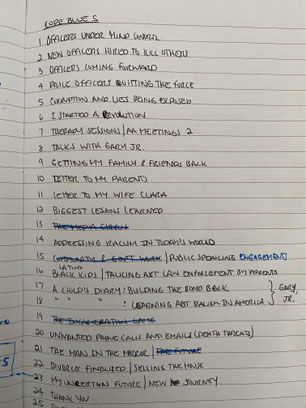 CODE BLUE S
1 OFFICERS UNDER MIND CONTROL
2 NEW OFFICERS HIRED TO KILL OTHERS
3 OFFICERS COMING FORWARD
4 POLICE OFFICERS QUITTING THE FORCE
5 CORRUPTION AND LIES BEING EXPOSED
6 I STARTED A REVOLUTION
7 THERAPY SESSIONS / AA MEETINGS 2
8 TALKS WITH GARY JR.
9 GETTING MY FAMILY & FRIENDS BACK
10 LETTER TO MY PARENTS
11 LETTER TO MY WIFE CLARA
12 BIGGEST LESSONS LEARNED
13 THE MEDIA CIRCUS
14 ADDRESSING RACISM IN TODAY'S WORLD
15 COMMUNITY & GOV'T WORK / PUBLIC SPEAKING ENGAGEMENTS
LATINO
16 BLACK KIDS / TALKING ABT LAW ENFORCEMENT W/ PARENTS
17 A CHILD'S DIARY: BUILDING THE BOND BACK
18 " " " : LEARNING ABT RACISM IN AMERICA
GARY, JR.
19 THE GAME
20 UNWANTED PHONE CALLS AND EMAILS (DEATH THREATS)
21 THE MAN IN THE MIRROR / THE FUTURE
22 DIVORCE FINALIZED / SELLING THE HOUSE
23 MY UNCERTAIN FUTURE / NEW JOURNEY
24 THANK YOU
25